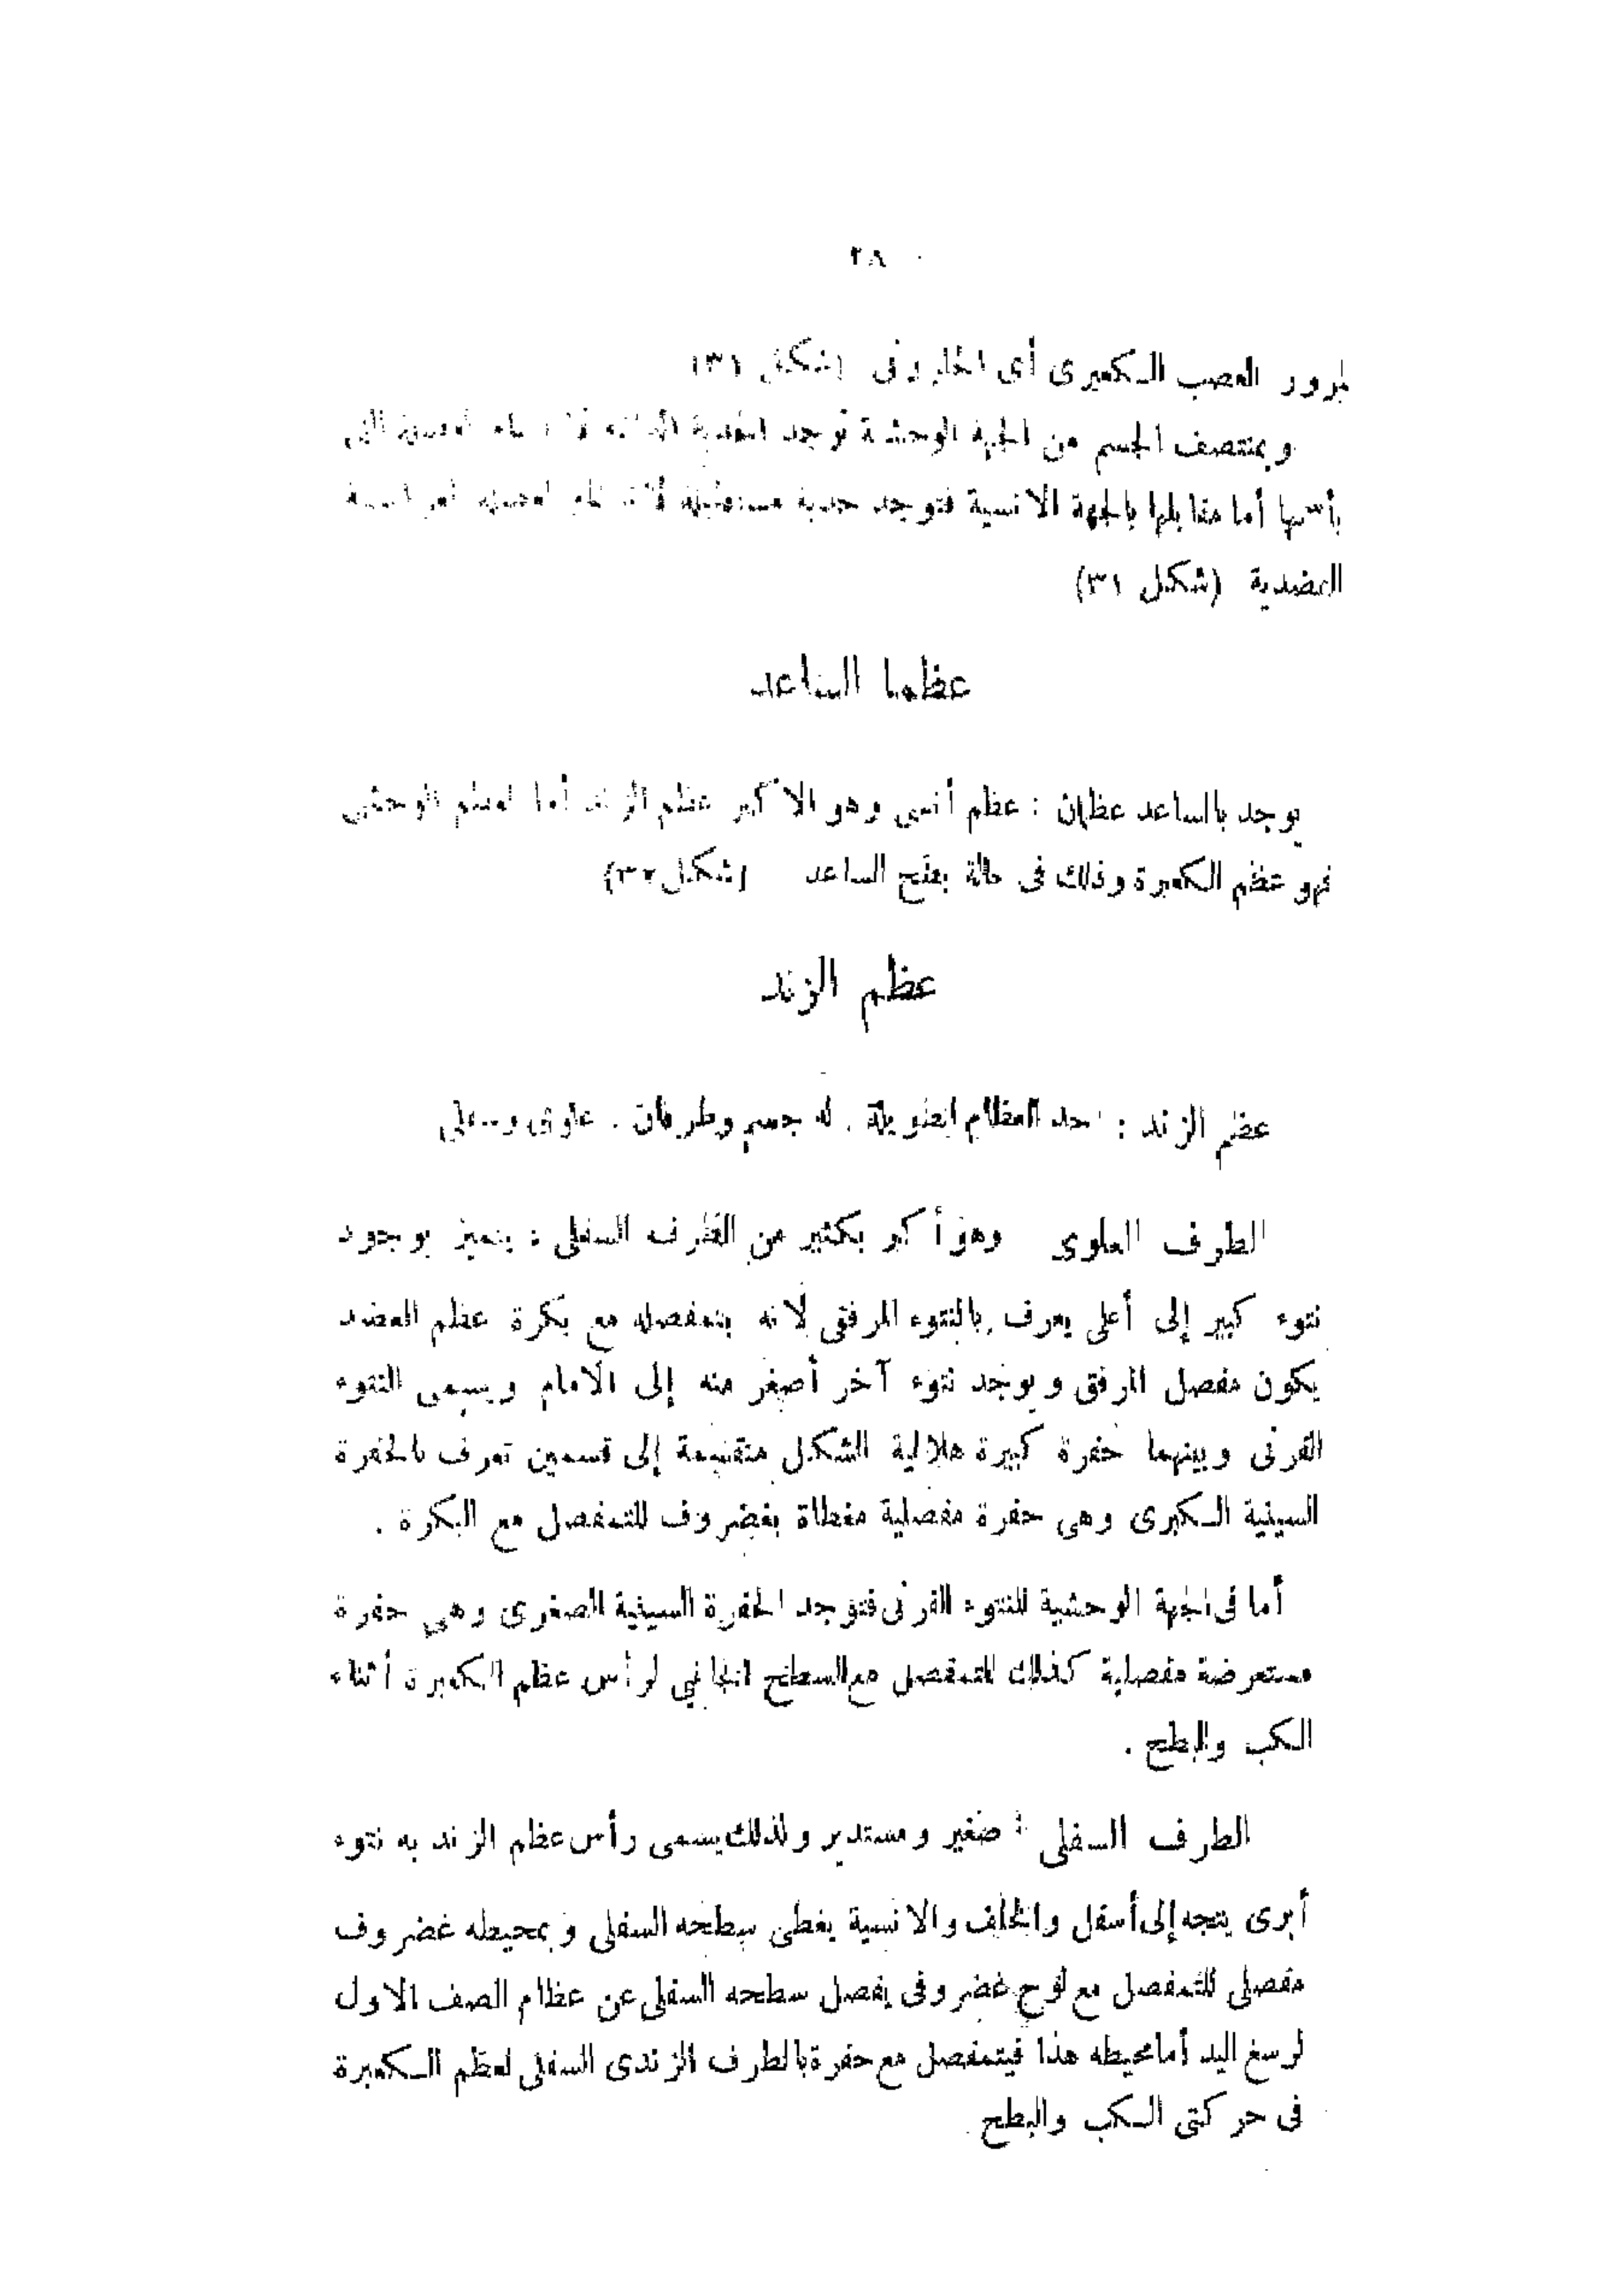 ٣٨
لمرور العصب الكعبرى أى الحلزونى (شكل ٣١)
وبمنتصف الجسم من الجهة الوحشية توجد الحدبة
أما مقابلها بالجهة الانسية فتوجد حدبة مستطيلة
العضدية (شكل ٣١)
عظما الساعد
يوجد بالساعد عظمان : عظم أنسى وهو الاكبر عظم الزند أما العظم الوحشى
فهو عظم الكعبرة وذلك فى حالة بطح الساعد (شكل ٣٢)
عظم الزند
عظم الزند : أحد العظام الطويلة . له جسم وطرفان . علوى وسفلى
الطرف العلوى وهو أكبر بكثير من الطرف السفلى : يتميز بوجود
نتوء كبير إلى أعلى يعرف بالنتوء المرفقى لانه بتمفصله مع بكرة عظم العضد
يكون مفصل المرفق ويوجد نتوء آخر أصغر منه إلى الامام ويسمى النتوء
القرنى وبينهما حفرة كبيرة هلالية الشكل منقسمة إلى قسمين تعرف بالحفرة
السينية الكبرى وهى حفرة مفصلية مغطاة بغضروف للتمفصل مع البكرة .
أما فى الجهة الوحشية للنتوء القرنى فتوجد الحفرة السينية الصغرى وهى حفرة
مستعرضة مفصلية كذلك للتمفصل مع السطح الجانبي لرأس عظم الكعبرة أثناء
الكب والبطح .
الطرف السفلى : صغير ومستدير ولذلك يسمى رأس عظم الزند به نتوء
أبرى يتجه إلى أسفل والخلف والانسية يغطى سطحه السفلى وبمحيطه غضروف
مفصلى للتمفصل مع لوح غضروفى يفصل سطحه السفلى عن عظام الصف الاول
لرسغ اليد أما محيطه هذا فيتمفصل مع حفرة بالطرف الزندى السفلى لعظم الكعبرة
فى حركتى الكب والبطح